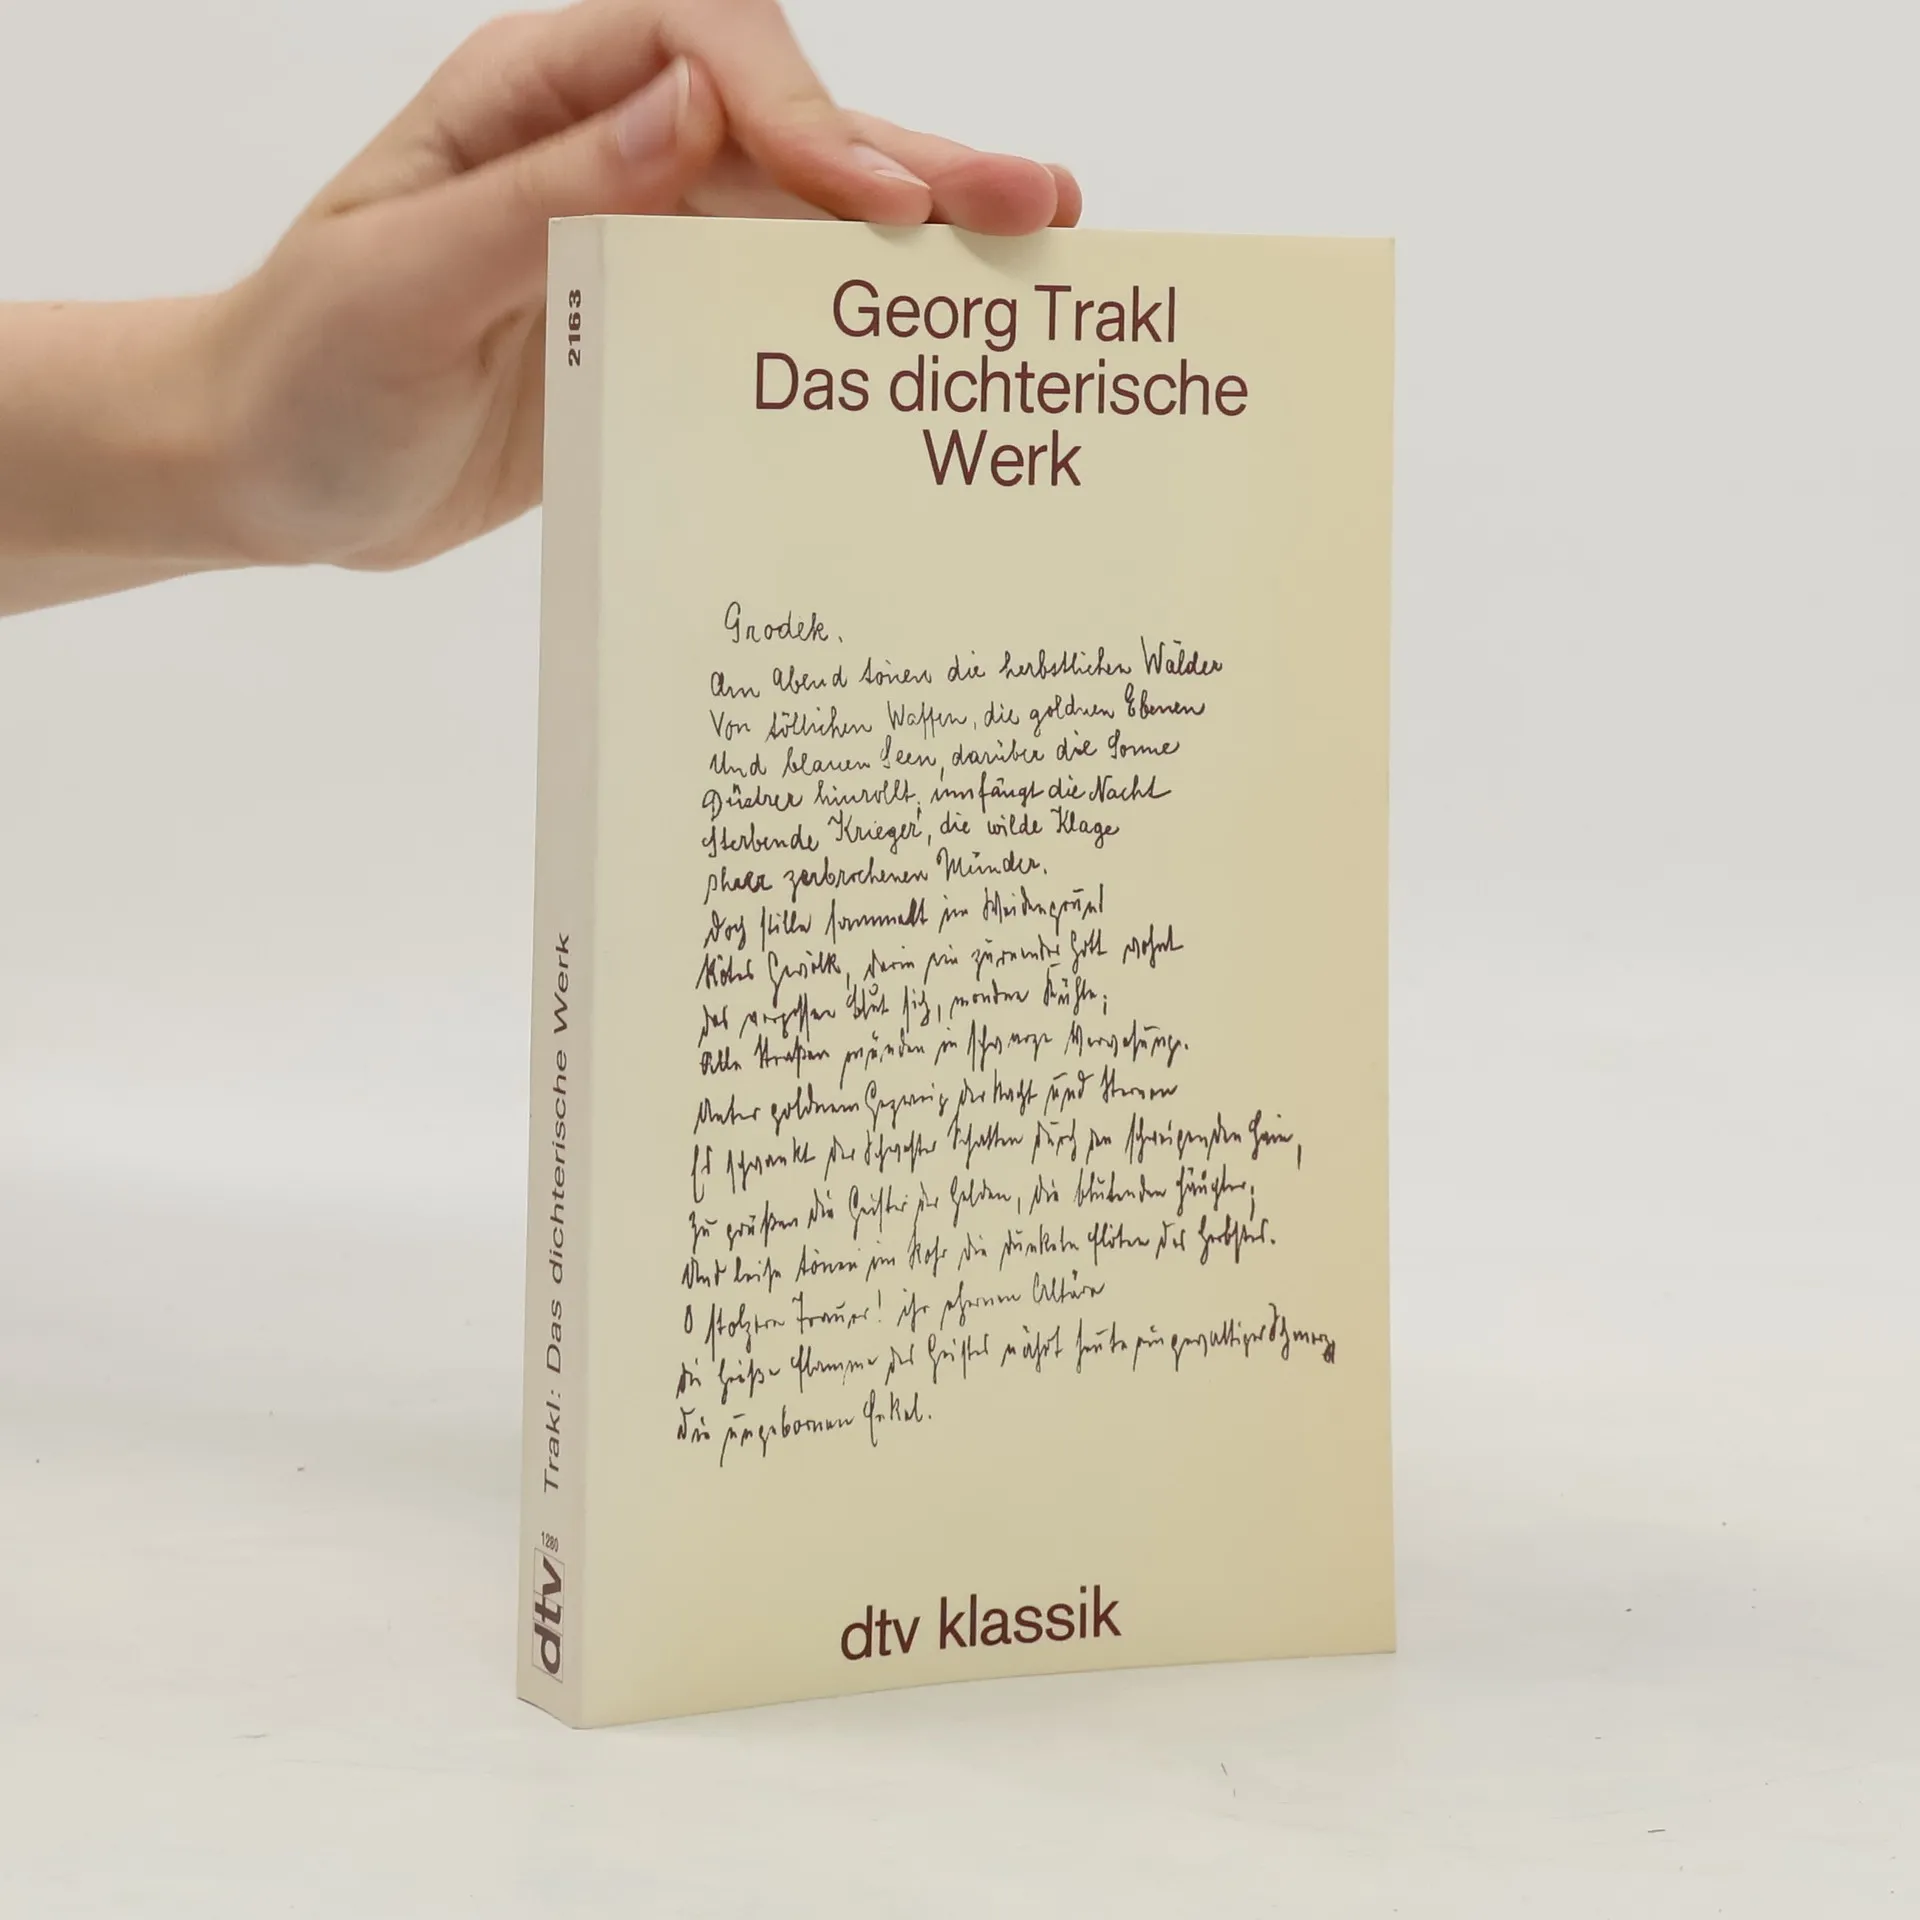 Georg Trakl
Das dichterische
Werk
Grodek.
Am Abend tönen die herbstlichen Wälder
Von tötlichen Waffen, die goldnen Ebenen
Und blauen Seen, darüber die Sonne
Düstrer hinrollt; umfängt die Nacht
Sterbende Krieger, die wilde Klage
Ihrer zerbrochenen Münder.
Doch stille sammelt im Weidengrund
Rotes Gewölk, darin ein zürnender Gott wohnt
Das vergossne Blut sich, mondne Kühle;
Alle Straßen münden in schwarze Verwesung.
Unter goldnem Gezweig der Nacht und Sternen
Es schwankt der Schwester Schatten durch den schweigenden Hain,
Zu grüßen die Geister der Helden, die blutenden Häupter;
Und leise tönen im Rohr die dunkeln Flöten des Herbstes.
O stolzere Trauer! ihr ehernen Altäre
Die heiße Flamme des Geistes nährt heute ein gewaltiger Schmerz,
Die ungebornen Enkel.
dtv klassik
2163
Trakl: Das dichterische Werk
1280
dtv